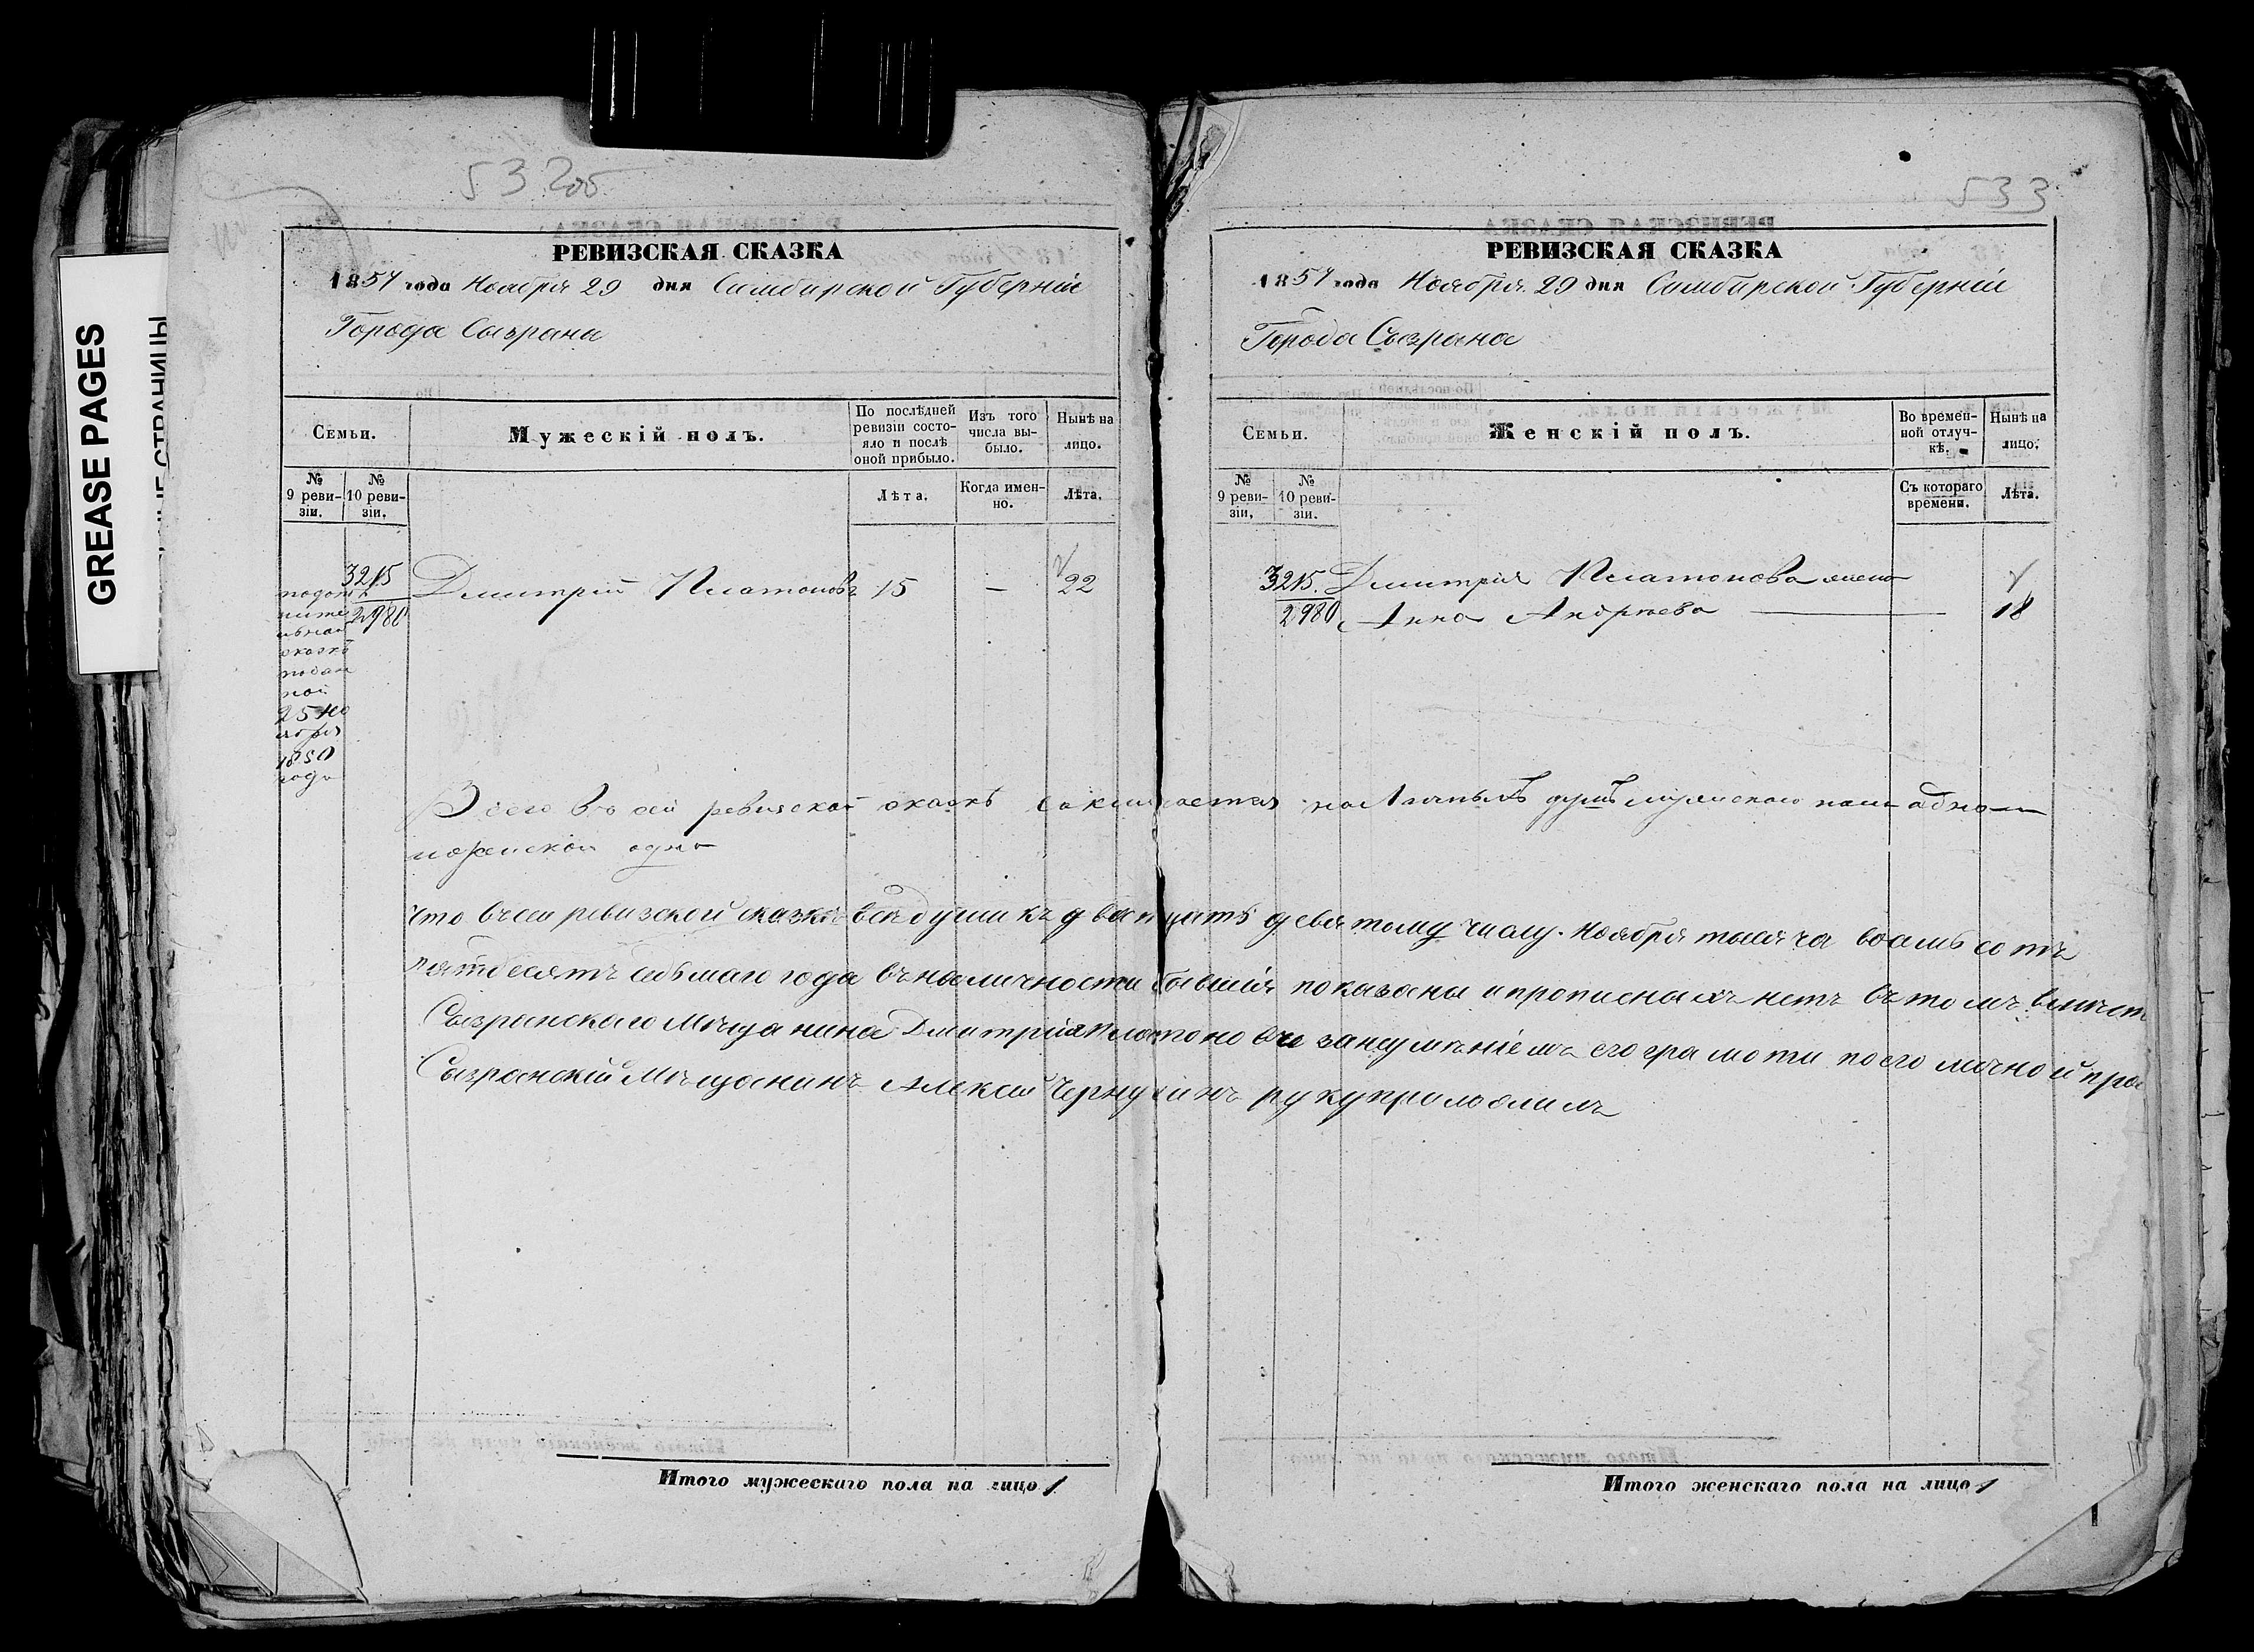 532об
РЕВИЗСКАЯ СКАЗКА
1857 года Ноября 29 дня Симбирской Губерніи
Города Сызрана
Семьи.
Мужескій полъ.
По послѣдней ревизіи состояло и послѣ оной прибыло.
Изъ того числа выбыло.
Нынѣ на лицо.
№ 9 ревизіи.
№ 10 ревизіи.
Лѣта.
Когда именно.
Лѣта.
3215
2980
Дмитрій Платоновъ 15 — 22
сказкѣ
подан
ной
25 но
ября
1850
года
533
РЕВИЗСКАЯ СКАЗКА
1857 года Ноября 29 дня Симбирской Губерніи
Города Сызрана
Семьи.
Женскій полъ.
Во временной отлучкѣ.
Нынѣ на лицо.
№ 9 ревизіи.
№ 10 ревизіи.
Съ котораго времени.
Лѣта.
3215. Дмитрія Платонова жена
2980 Анна Андреева — 18
Всего въ сей ревизской сказкѣ заключается наличныхъ душъ мужскаго пола одна
женской одна
что в сей ревизской сказке все души къ двацать девятому числу Ноября тысяча восемь сотъ
пятдесятъ седьмаго года въ наличности бывшія показаны и прописных нетъ въ томъ вместо
Сызранскаго Мещанина Дмитрія Платонова за неуменіемъ его грамоти по его личной прос
Сызранскій Мещанинъ Алексей Чернухинъ руку приложилъ
Итого мужескаго пола на лицо 1
Итого женскаго пола на лицо 1
GREASE PAGES
СТРАНИЦЫ